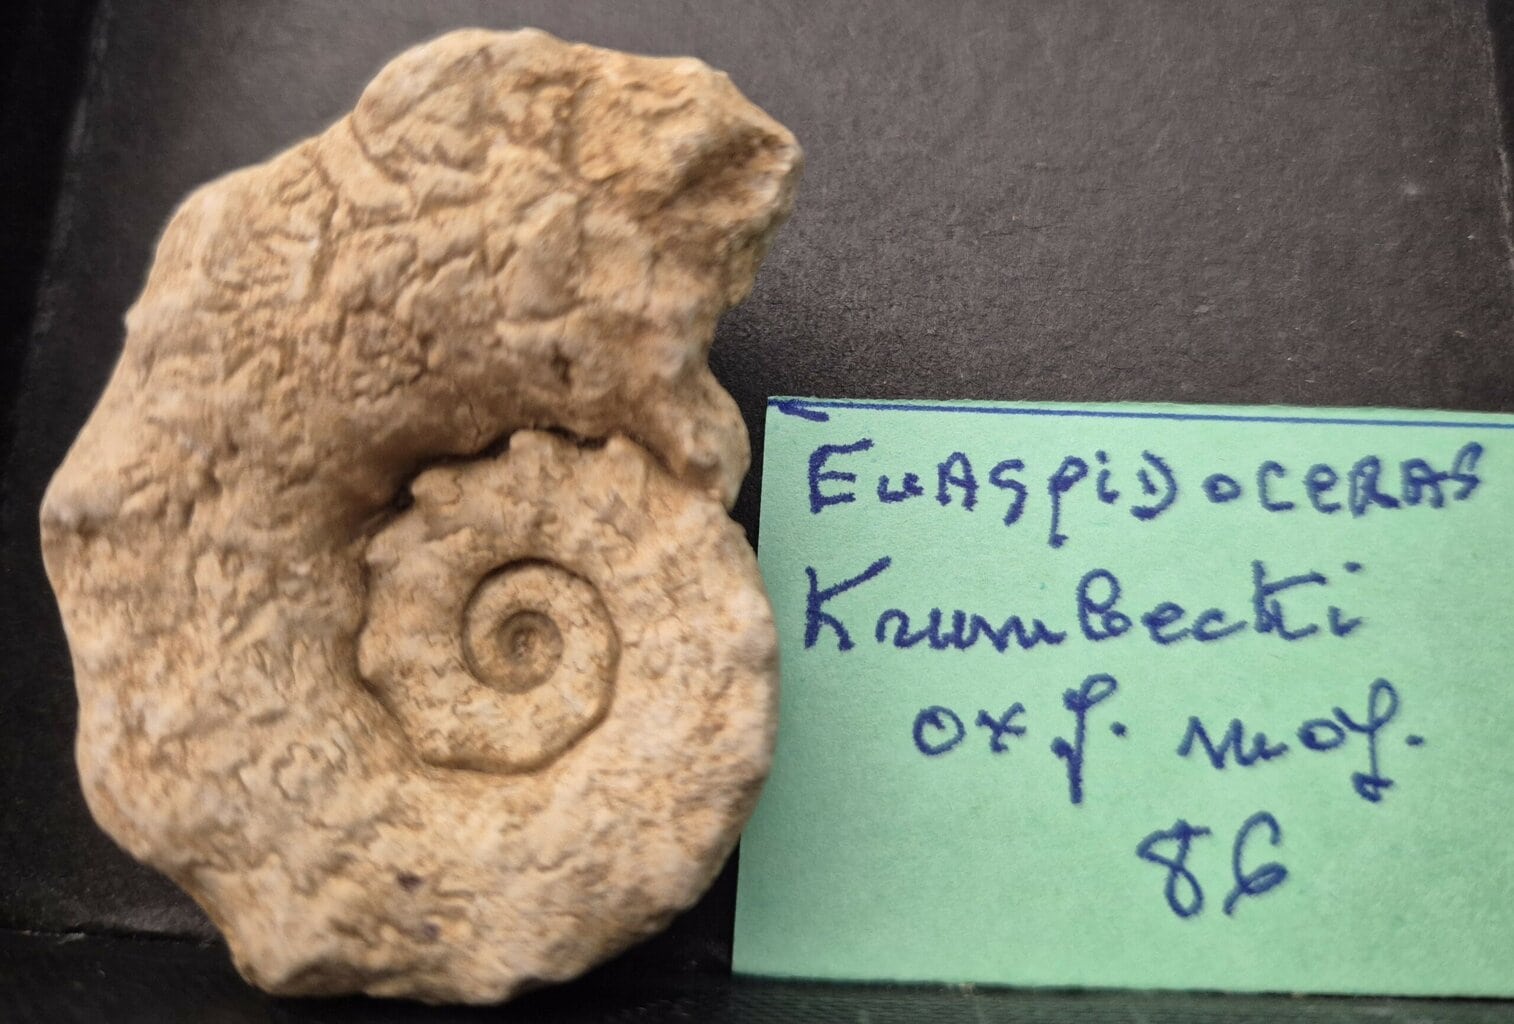 EuASpiDoceRAS
Krumbecki
oxf. moy.
86